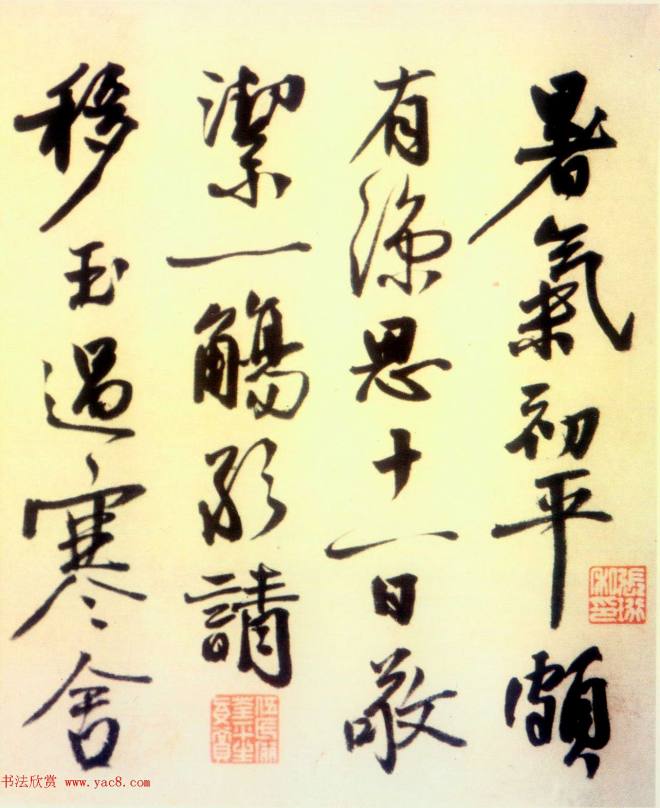 暑氣初平頗
有涼思十一日敬
潔一觴請
移玉過寒舍
張珩私印
书法欣赏 www.yac8.com